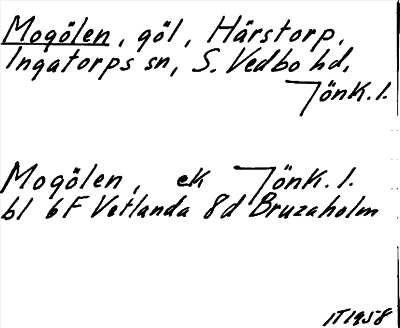 Mogölen, göl, Härstorp,
Ingatorps sn, S. Vedbo hd,
Jönk. l.
Mogölen, ek Jönk. l.
bl 6F Vetlanda 8d Bruzaholm
IT1958